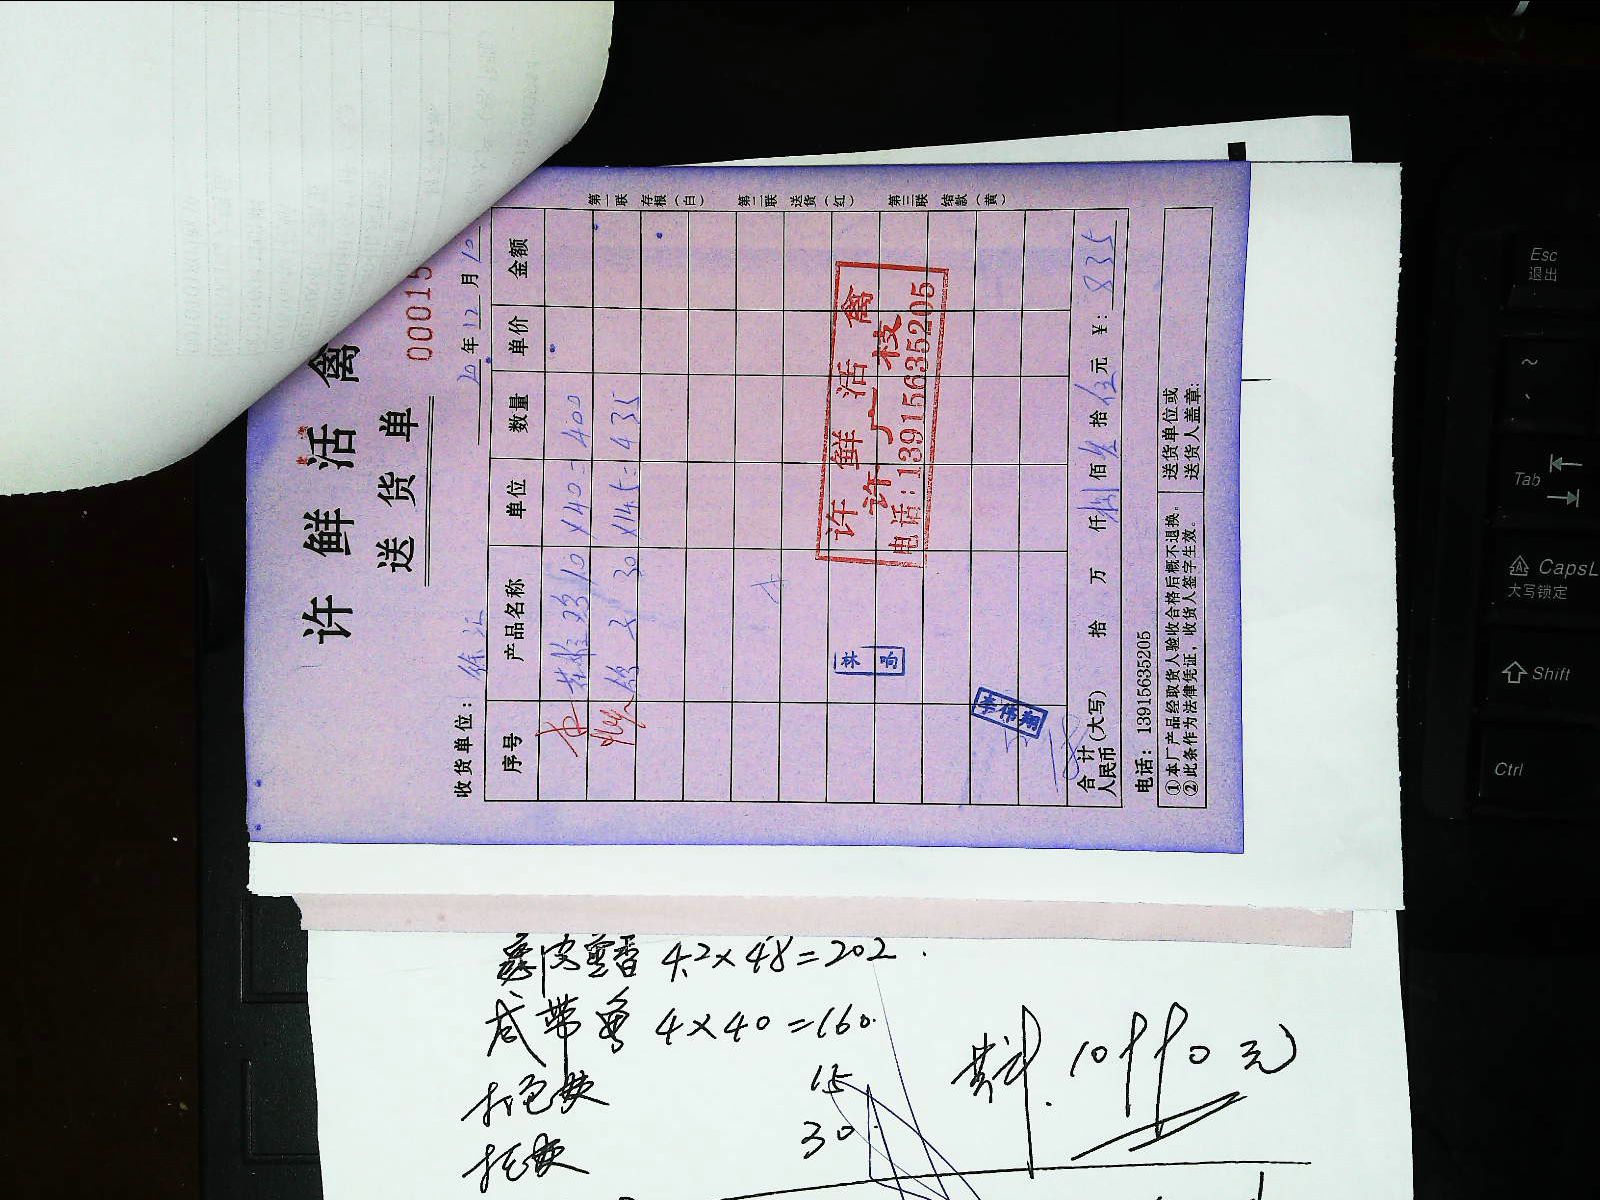 许鲜活禽
送货单
00015
收货单位：徐汇
20年12月10
序号 产品名称 单位 数量 单价 金额
10×40=400
30×14.5=435
许鲜活禽
许广枝
电话：13915635205
林响
李伟翔
合计人民币(大写) 拾 万 仟 捌佰 拾伍元 ¥：835
电话：13915635205
①本厂产品经取货人验收合格后概不退换。
②此条作为法律凭证，收货人签字生效。
送货单位或
送货人盖章：
第一联 存根（白） 第二联 送货（红） 第三联 结款（黄）
4.2×48=202
咸带鱼 4×40=160
15
30
共计 元
Esc
退出
~
Tab
CapsL
大写锁定
Shift
Ctrl